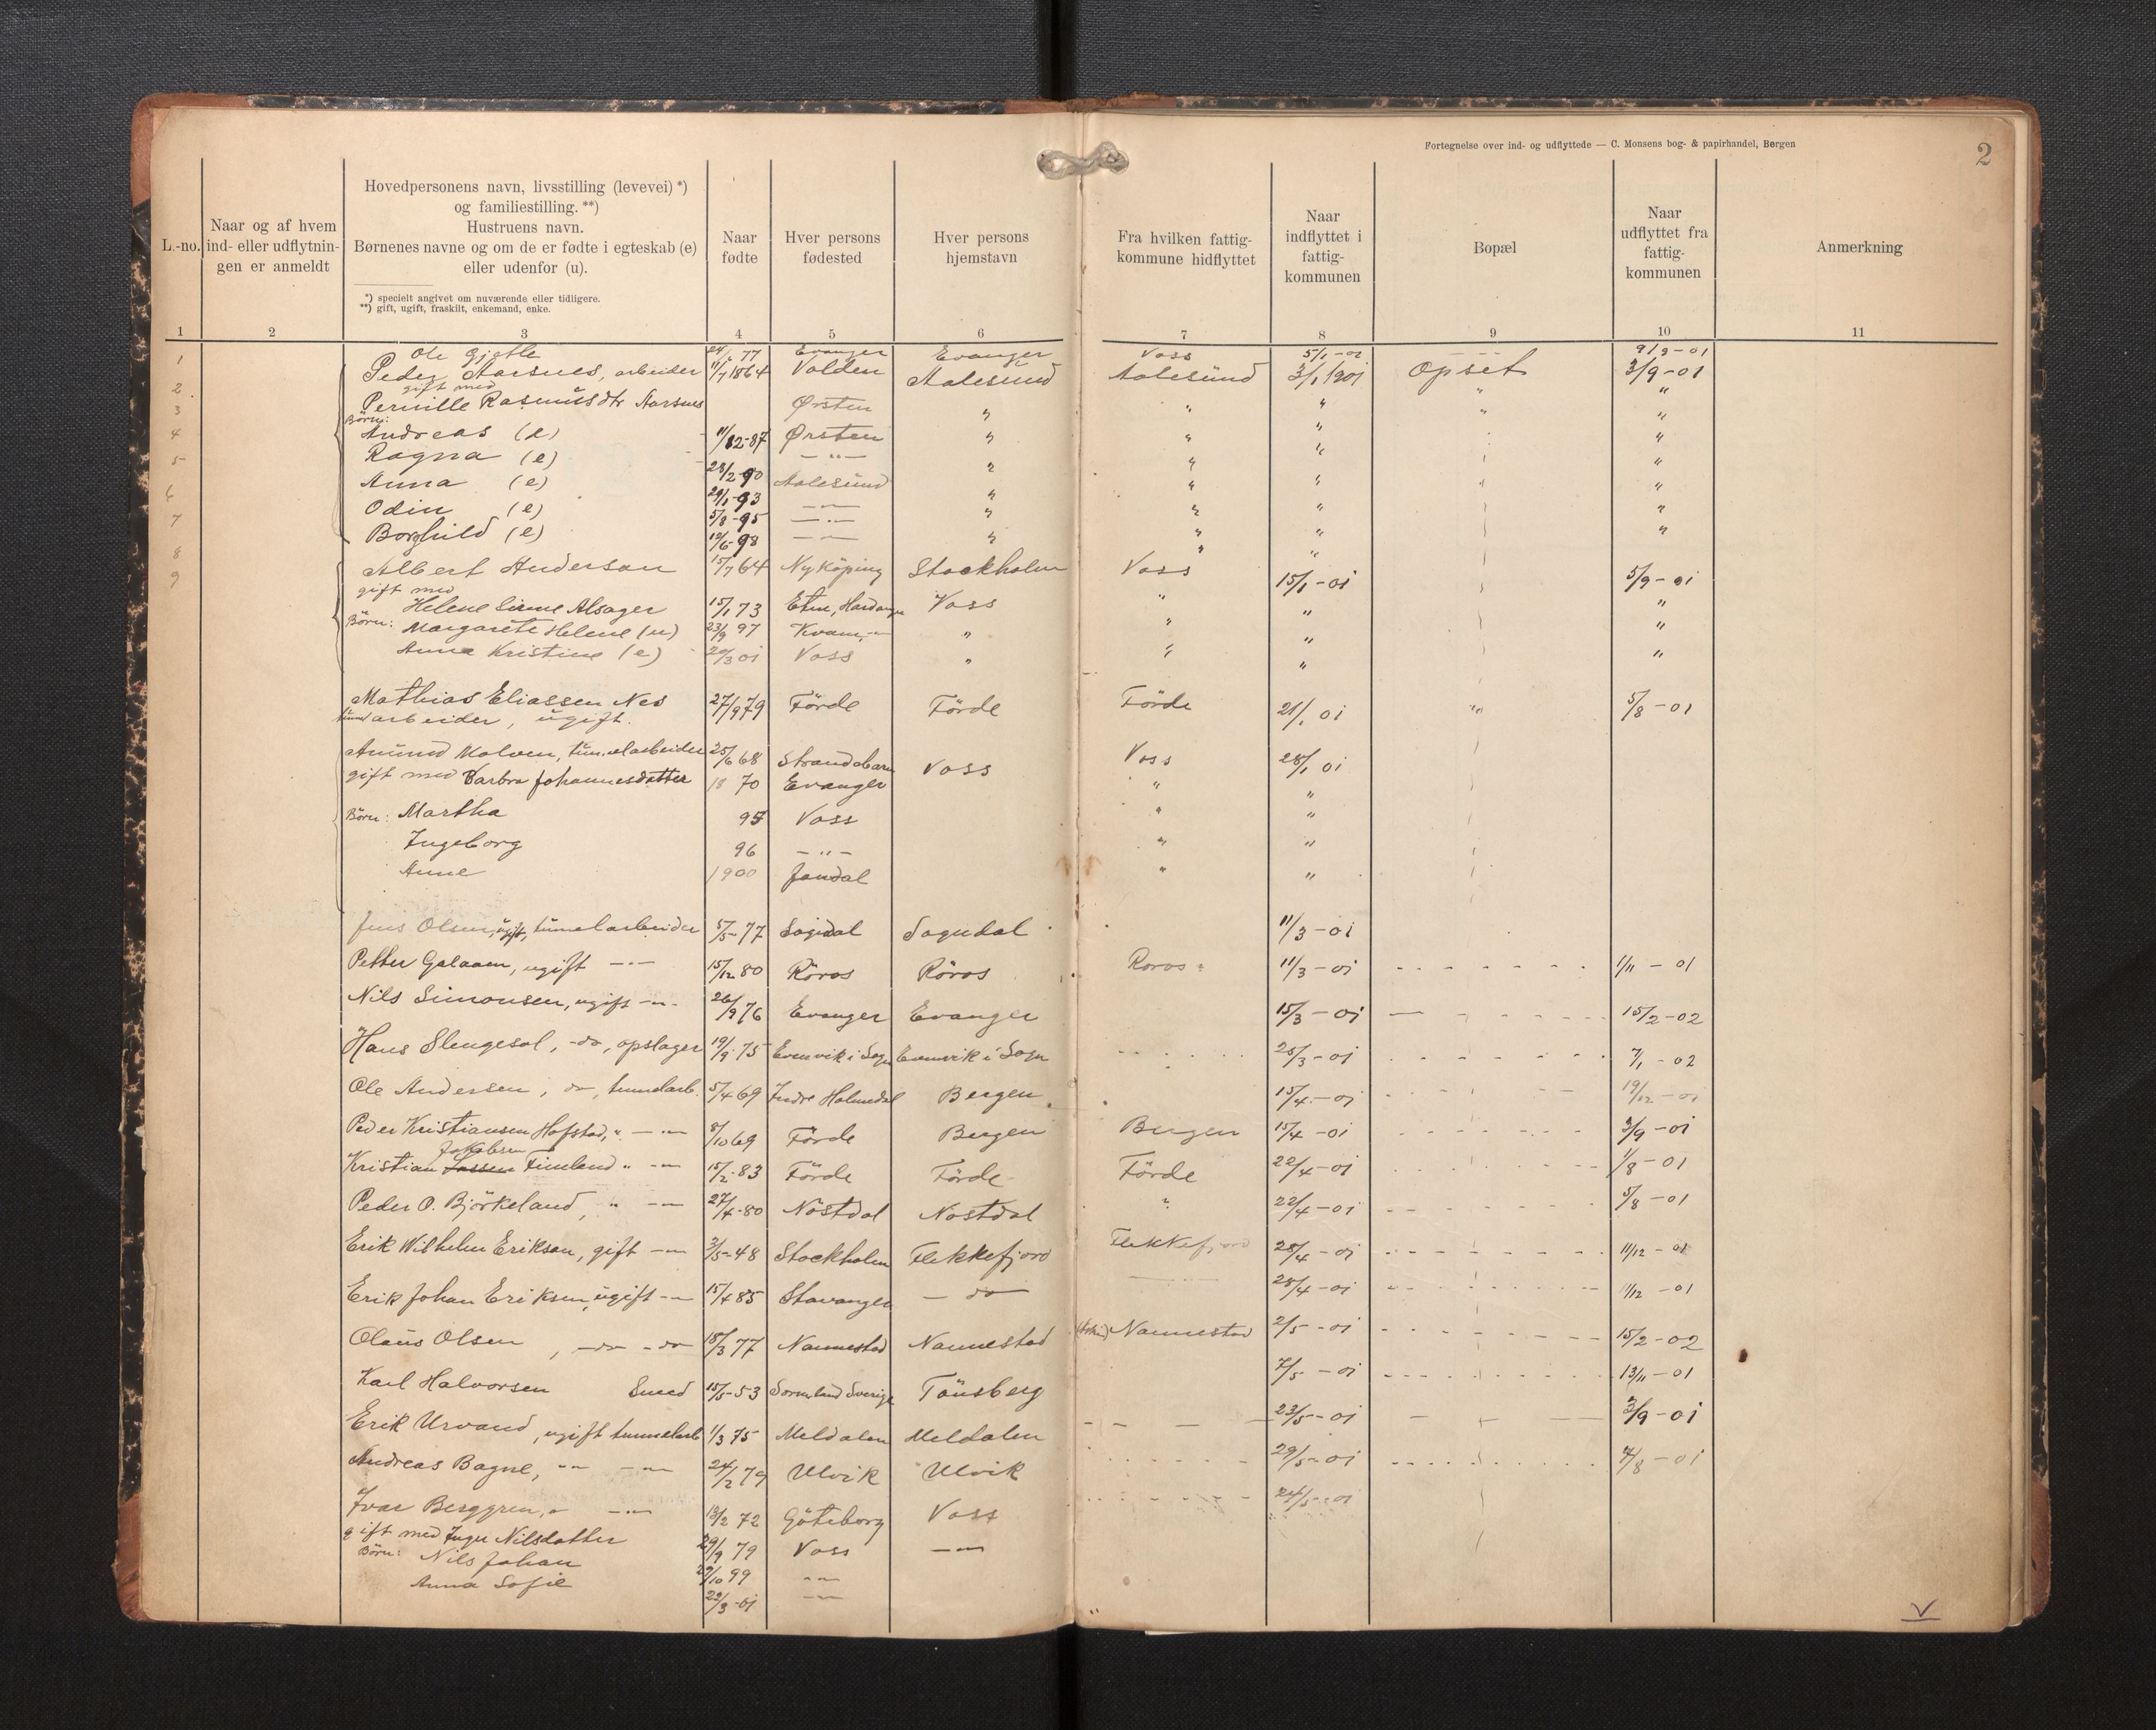 Fortegnelse over ind- og udflyttede — C. Monsens bog- & papirhandel, Bergen
2
L.-no.
Naar og af hvem ind- eller udflytnin-gen er anmeldt
Hovedpersonens navn, livsstilling (levevei) *)
og familiestilling. **)
Hustruens navn.
Børnenes navne og om de er fødte i egteskab (e)
eller udenfor (u).
*) specielt angivet om nuværende eller tidligere.
**) gift, ugift, fraskilt, enkemand, enke.
Naar fødte
Hver persons fødested
Hver persons hjemstavn
Fra hvilken fattig-kommune hidflyttet
Naar indflyttet i fattig-kommunen
Bopæl
Naar udflyttet fra fattig-kommunen
Anmerkning
1 2 3 4 5 6 7 8 9 10 11
Ole Gjelle 77 Evanger Evanger Voss 5/1-01 9/9-01
1 Peder Aarsnes, arbeider 11/7 1864 Volden Aalesund Aalesund 3/1 1901 Opset 3/9-01
gift med
2 Pernille Rasmusdtr Aarsnes Ørsten " " " " "
Børn:
3 Andreas (e) 11/12-87 Ørsten " " " "
4 Ragna (e) 28/2-90 —"— " " " "
5 Anna (e) 29/1-93 Aalesund " " " "
6 Odin (e) 5/8-95 —"— " " " "
7 Borghild (e) 10/6-98 —"— " " " "
8 Albert Anderson 15/7 64 Nyköping Stockholm Voss 15/1-01 5/9-01
gift med
9 Helene Alsager 15/1 73 Etne, Hardanger Voss " " "
Børn: Margarete Helene (u) 23/9 97 Kvam " " " "
Anna Kristine (e) 20/3 01 Voss " " " "
Mathias Eliassen Nes 27/9 79 Förde Förde Förde 21/1 01 " 5/8-01
tunnelarbeider, ugift.
Amund Molven, tunnelarbeider 25/6 68 Strandebarm Voss Voss 28/1 01
gift med Barbra Johannesdatter 18 70 Evanger " "
Børn: Martha 95 Voss " "
Ingeborg 96 —"— " "
Anne 1900 Jondal " "
Jens Olsen, ugift, tunnelarbeider 5/5-77 Sogndal Sogndal 11/3-01
Petter Galaaen, ugift —"— 15/12 80 Röros Röros Roros 11/3-01 1/11-01
Nils Simonsen, ugift —"— 26/9 76 Evanger Evanger 15/3-01 15/2-02
Hans Slengesol, -do-, opslager 19/9 75 Evenvik i Sogn Evenvik i Sogn 25/3-01 7/1-02
Ole Andersen, do, tunnelarb. 5/4 69 Indre Holmedal Bergen 15/4-01 19/12-01
Peder Kristiansen Hofstad, " —"— 8/10 69 Förde Bergen Bergen 15/4-01 3/9-01
Jakobsen
Kristian Lassen Fimland " —"— 15/2-83 Förde Förde Förde 22/4-01 1/8-01
Peder O. Björkeland, " —"— 27/4-80 Nöstdal Nostdal " 22/4-01 5/8-01
Erik Wilhelm Erikson, gift —"— 3/5-48 Stockholm Flekkefjord Flekkefjord 28/4-01 11/12-01
Erik Johan Eriksen, ugift —"— 15/4 85 Stavanger — do — 28/4-01 11/12-01
Olaus Olsen, -do- -do- 18/3 77 Nannestad Nannestad Nannestad 2/5-01 15/2-02
Karl Halvorsen Smed 15/5-53 Sormland Sverige Tönsberg 7/5-01 13/11-01
Erik Urvand, ugift tunnelarb 1/3 75 Meldalen Meldalen 23/5-01 3/9-01
Andreas Bagne, —"— —"— 24/2 79 Ulvik Ulvik 29/5-01 7/8-01
Ivar Berggren, " —"— 13/2 72 Göteborg Voss 24/5-01
gift med Inger Nilsdatter 29/9 79 Voss —"—
Børn: Nils Johan 29/10 99 —"—
Anna Sofie 22/3-01 —"—
V